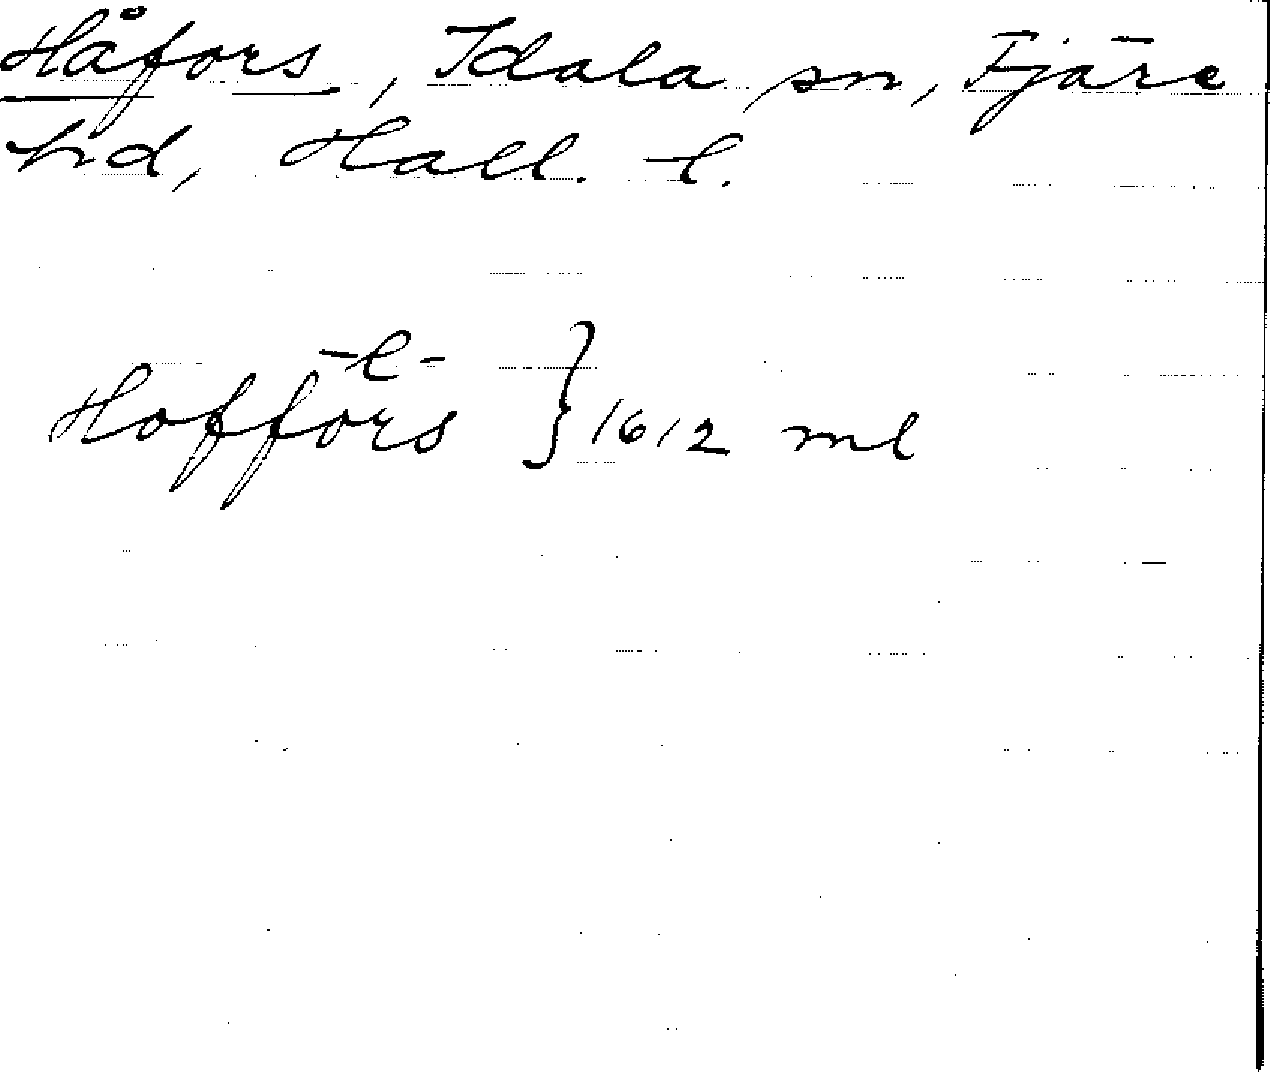 Håfors, Idala sn, Fjäre
hd, Hall. l.
-e-
Hoffors } 1612 ml